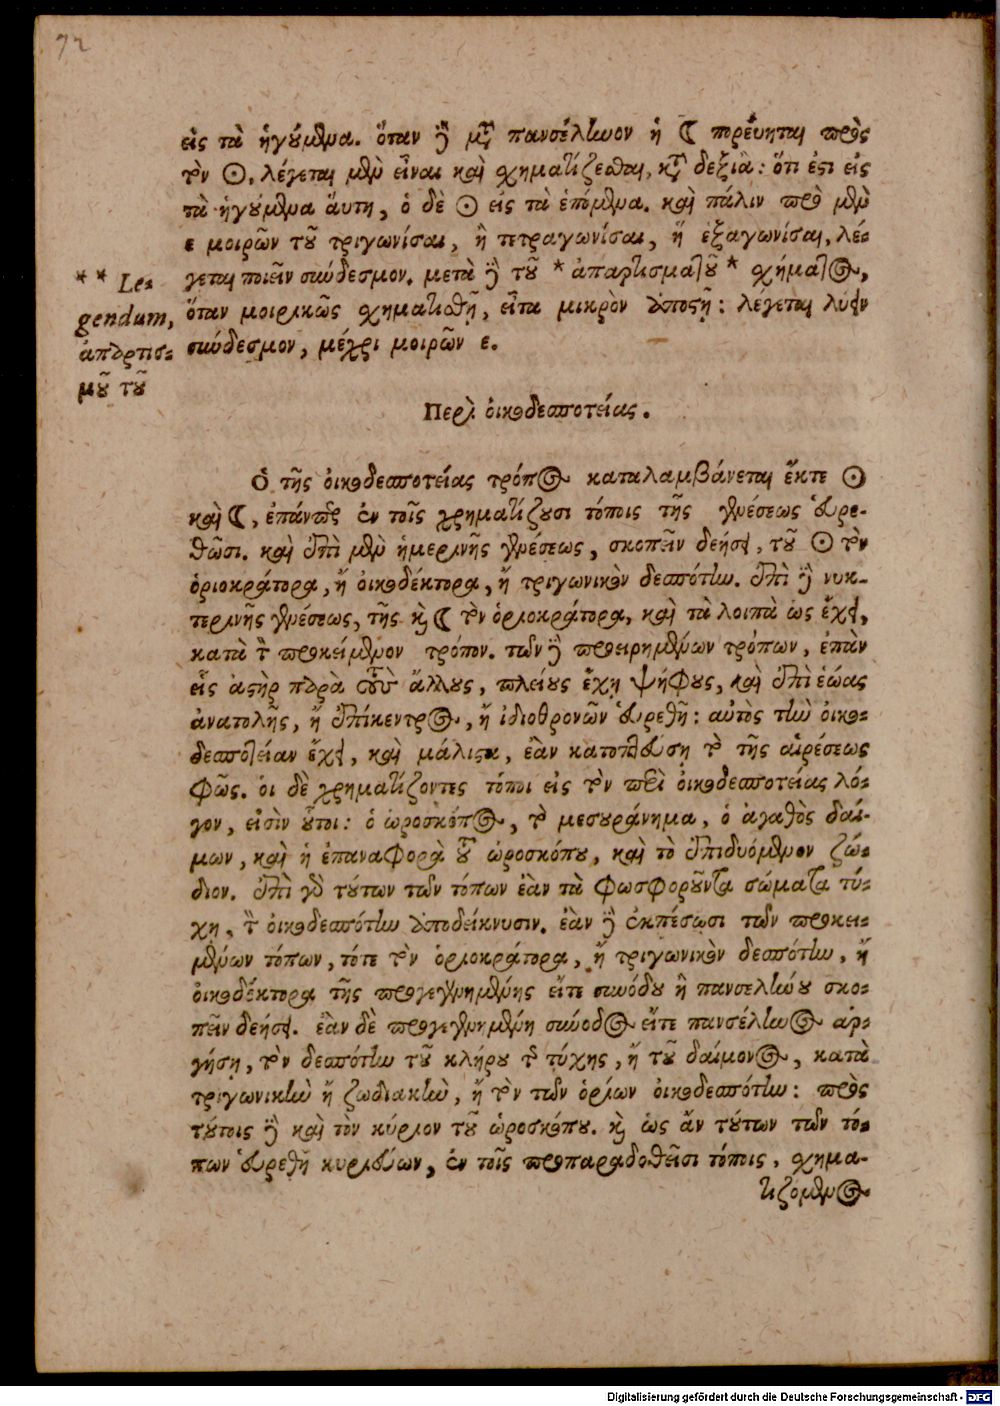 72
εἰς τὰ ἡγούμενα. ὅταν δὲ μετὰ πανσέληνον ἡ ☾ πορεύηται πρὸς
τὸν ☉, λέγεται μὲν εἶναι καὶ σχηματίζεσθαι, κατὰ δεξιὰ: ὅτι ἐστι εἰς
τὰ ἡγούμενα αὕτη, ὁ δὲ ☉ εἰς τὰ ἑπόμενα. καὶ πάλιν πρὸ μὲν
ε μοιρῶν τοῦ τριγωνίσαι, ἢ τετραγωνίσαι, ἢ ἑξαγωνίσαι, λέ-
γεται ποιεῖν σύνδεσμον. μετὰ δὲ τοῦ * ἀπαρτισματοῦ * σχήματος,
ὅταν μοιρικῶς σχηματισθῇ, εἶτα μικρὸν ἀποστῇ: λέγεται λύειν
σύνδεσμον, μέχρι μοιρῶν ε.
* * Le-
gendum,
ἀπαρτισ-
μοῦ τοῦ
Περὶ οἰκοδεσποτείας.
Ὁ τῆς οἰκοδεσποτείας τρόπος καταλαμβάνεται ἔκτε ☉
καὶ ☾, ἐπάντες ἐν τοῖς χρηματίζουσι τόποις τῆς γενέσεως εὑρε-
θῶσι. καὶ ἐπὶ μὲν ἡμερινῆς γενέσεως, σκοπεῖν δεήσει, τοῦ ☉ τὸν
ὁριοκράτορα, ἢ οἰκοδέκτορα, ἢ τριγωνικὸν δεσπότην. ἐπὶ δὲ νυκ-
τερινῆς γενέσεως, τῆς καὶ ☾ τὸν ὁριοκράτορα, καὶ τὰ λοιπὰ ὡς ἔχει,
κατὰ τὸν προκείμενον τρόπον. τῶν δὲ προειρημένων τρόπων, ἐπὰν
εἷς ἀστὴρ παρὰ τοὺς ἄλλους, πλείους ἔχῃ ψήφους, καὶ ἐπὶ ἑώας
ἀνατολῆς, ἢ ἐπίκεντρος, ἢ ἰδιοθρονῶν εὑρεθῇ: αὐτὸς τὴν οἰκο-
δεσποτείαν ἔχει, καὶ μάλιστα, ἐὰν κατοπτεύσῃ τὸ τῆς αἱρέσεως
φῶς. οἱ δὲ χρηματίζοντες τόποι εἰς τὸν περὶ οἰκοδεσποτείας λό-
γον, εἰσὶν οὗτοι: ὁ ὡροσκόπος, τὸ μεσουράνημα, ὁ ἀγαθὸς δαί-
μων, καὶ ἡ ἐπαναφορὰ τοῦ ὡροσκόπου, καὶ τὸ ἐπιδυόμενον ζώ-
διον. ἐπὶ γὰρ τούτων τῶν τόπων ἐὰν τὰ φωσφοροῦντα σώματα τύ-
χῃ, τὸν οἰκοδεσπότην ἀποδείκνυσιν. ἐὰν δὲ ἐκπέσωσι τῶν προκει-
μένων τόπων, τότε τὸν ὁριοκράτορα, ἢ τριγωνικὸν δεσπότην, ἢ
οἰκοδέκτορα τῆς προγεγενημένης εἴτε συνόδου ἢ πανσελήνου σκο-
πεῖν δεήσει. ἐὰν δὲ προγεγενημένη σύνοδος εἴτε πανσέληνος ἀρ-
γήσῃ, τὸν δεσπότην τοῦ κλήρου τῆς τύχης, ἢ τοῦ δαίμονος, κατὰ
τριγωνικὴν ἢ ζωδιακὴν, ἢ τὸν τῶν ὁρίων οἰκοδεσπότην: πρὸς
τούτοις δὲ καὶ τὸν κύριον τοῦ ὡροσκόπου. καὶ ὡς ἂν τούτων τῶν τό-
πων εὑρεθῇ κυριεύων, ἐν τοῖς προπαραδοθεῖσι τόποις, σχημα-
τιζόμενος
Digitalisierung gefördert durch die Deutsche Forschungsgemeinschaft - DFG